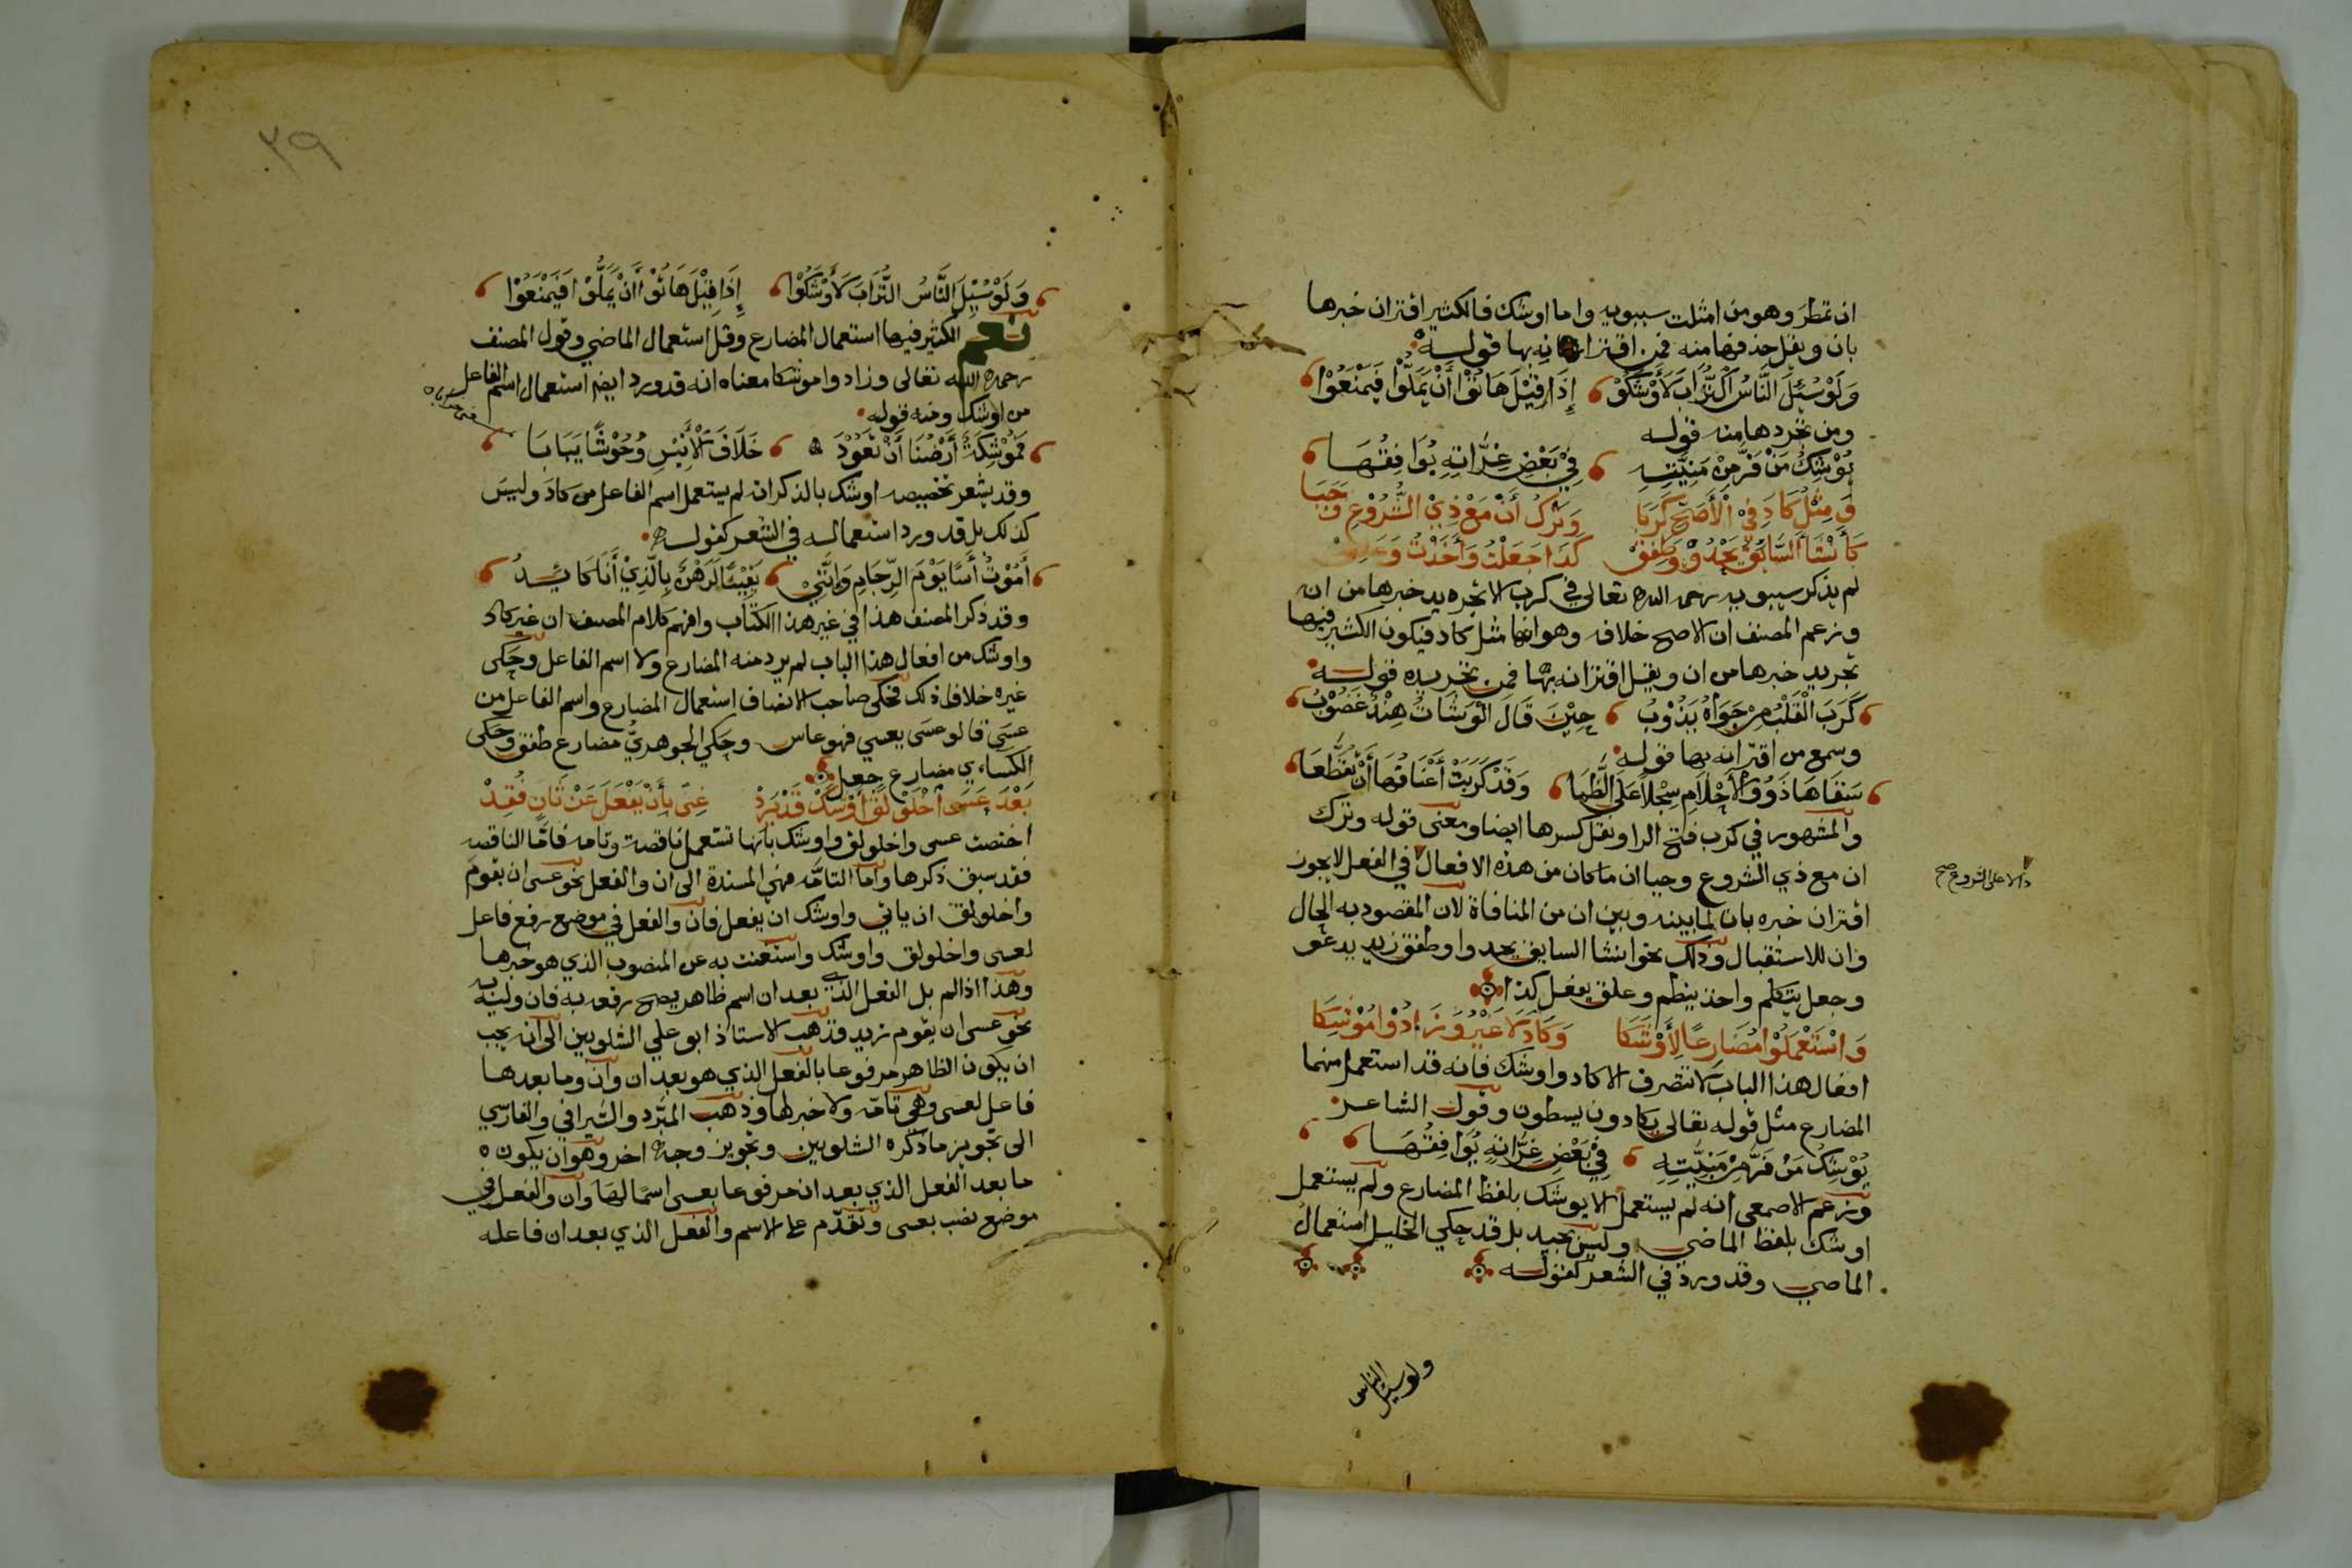 ان تمطر وهو من امثلت سيبويه واما اوشك فالكثير اقتران خبرها
بان ويقل حذفها منه فمن اقترانه بها قوله
وَلَوْ سُئِلَ النَّاسُ التُّرَابَ لَأَوْشَكُوْا إِذَا قِيْلَ هَاتُوْا أَنْ يَمَلُّوْا فَيَمْنَعُوْا
ومن تجردها منه قوله
يُوْشِكُ مَنْ فَرَّ مِنْ مَنِيَّتِهِ فِيْ بَعْضِ غِرَّاتِهِ يُوَافِقُهَا
وَمِثْلُ كَادَ فِيْ الْأَصَحِّ كَرَبَا وَتَرْكُ أَنْ مَعْ ذِيْ الشُّرُوْعِ وَجَبَا
كَأَنْشَأَ السَّائِقُ يَحْدُوْ وَطَفِقْ كَذَا جَعَلْتُ وَأَخَذْتُ وَعَلِقْ
لم يذكر سيبويه رحمه الله تعالى في كرب الا تجريد خبرها من ان
وزعم المصنف ان الاصح خلافه وهو انها مثل كاد فيكون الكثير فيها
تجريد خبرها من ان ويقل اقترانه بها فمن تجريده قوله
كَرَبَ الْقَلْبُ مِنْ جَوَاهُ يَذُوْبُ حِيْنَ قَالَ الْوُشَاتُ هِنْدٌ غَضُوْبُ
وسمع من اقترانه بها قوله
سَقَاهَا ذَوُوْ الْأَحْلَامِ سَجْلاً عَلَى الظَّمَا وَقَدْ كَرَبَتْ أَعْنَاقُهَا أَنْ تَقَطَّعَا
والمشهور في كرب فتح الرا ونقل كسرها ايضا ومعنى قوله وترك
ان مع ذي الشروع وجبا ان ما كان من هذه الافعال في الفعل لا يجوز
دالا على الشروع صح
اقتران خبره بان لما بينه وبين ان من المنافاة لان المقصود به الحال
وان للاستقبال وذلك نحو انشا السايق يحدوا وطفق زيد يدعو
وجعل يتكلم واخذ ينظم وعلق يفعل كذا
وَاسْتَعْمَلُوْا مُضَارِعًا لِأَوْشَكَا وَكَادَ لَا غَيْرُ وَزَادُوْا مُوْشِكَا
افعال هذا الباب لا تتصرف الا كاد واوشك فانه قد استعمل منهما
المضارع مثل قوله تعالى يكادون يسطون وقول الشاعر
يُوْشِكُ مَنْ فَرَّ مِنْ مَنِيَّتِهِ فِيْ بَعْضِ غِرَّاتِهِ يُوَافِقُهَا
وزعم الاصمعي انه لم يستعمل الا يوشك بلفظ المضارع ولم يستعمل
اوشك بلفظ الماضي وليس بجيد بل قد حكي الخليل استعمال
الماضي وقد ورد في الشعر كقوله
ولو سئل الناس
٣٩
وَلَوْ سُئِلَ النَّاسُ التُّرَابَ لَأَوْشَكُوْا إِذَا قِيْلَ هَاتُوْا أَنْ يَمَلُّوْا فَيَمْنَعُوْا
نعم الكثير فيها استعمال المضارع وقل استعمال الماضي وقول المصنف
رحمه الله تعالى وزادوا موشكا معناه انه قد ورد ايضا استعمال اسم الفاعل
من اوشك ومنه قوله
فَمُوْشِكَةٌ أَرْضُنَا أَنْ تَعُوْدَ خَلَافَ الْأَنِيْسِ وُحُوْشًا يَبَابَا
وقد يشعر تخصيصه اوشك بالذكر انه لم يستعمل اسم الفاعل من كاد وليس
كذلك بل قد ورد استعماله في الشعر كقوله
أَمُوْتُ أَسًا يَوْمَ الرِّجَامِ وَإِنَّنِيْ يَقِيْنًا لَرَهْنٌ بِالَّذِيْ أَنَا كَائِدُ
وقد ذكر المصنف هذا في غير هذا الكتاب وافهم كلام المصنف ان غير كاد
واوشك من افعال هذا الباب لم يرد منه المضارع ولا اسم الفاعل وحكى
غيره خلاف ذلك فحكى صاحب الانصاف استعمال المضارع واسم الفاعل من
عسى قالو عسى يعسي فهو عاس وحكي الجوهريّ مضارع طفق وحكى
الكساءي مضارع جعل
بَعْدَ عَسَى اخْلَوْلَقَ أَوْشَكْ قَدْ يَرِدْ غِنًى بِأَنْ يَفْعَلَ عَنْ ثَانٍ فُقِدْ
اختصت عسى واخلولق واوشك بانها تستعمل ناقصة وتامه فامّا الناقصه
فقد سبق ذكرها واما التامّه فهي المسندة الى ان والفعل نحو عسى ان يقوم
واخلولق ان ياتي واوشك ان يفعل فان والفعل في موضع رفع فاعل
لعسى واخلولق واوشك واستغنت به عن المنصوب الذي هو خبرها
وهذا اذا لم يل الفعل الذي بعد ان اسم ظاهر يصح رفعه به فان وليه
نحو عسى ان يقوم زيد فذهب الاستاذ ابو علي الشلوبين الى انه يجب
ان يكون الظاهر مرفوعا بالفعل الذي هو بعد ان وان وما بعدها
فاعل لعسى وهي تامّه ولا خبر لها وذهب المبرّد والسّيرافي والفارسي
الى تجويز ما ذكره الشلوبين وتجويز وجه اخر وهو ان يكون
ما بعد الفعل الذي بعد ان مرفوعا بعسى اسمًا لها وان والفعل في
موضع نصب بعسى وتقدّم على الاسم والفعل الذي بعد ان فاعله